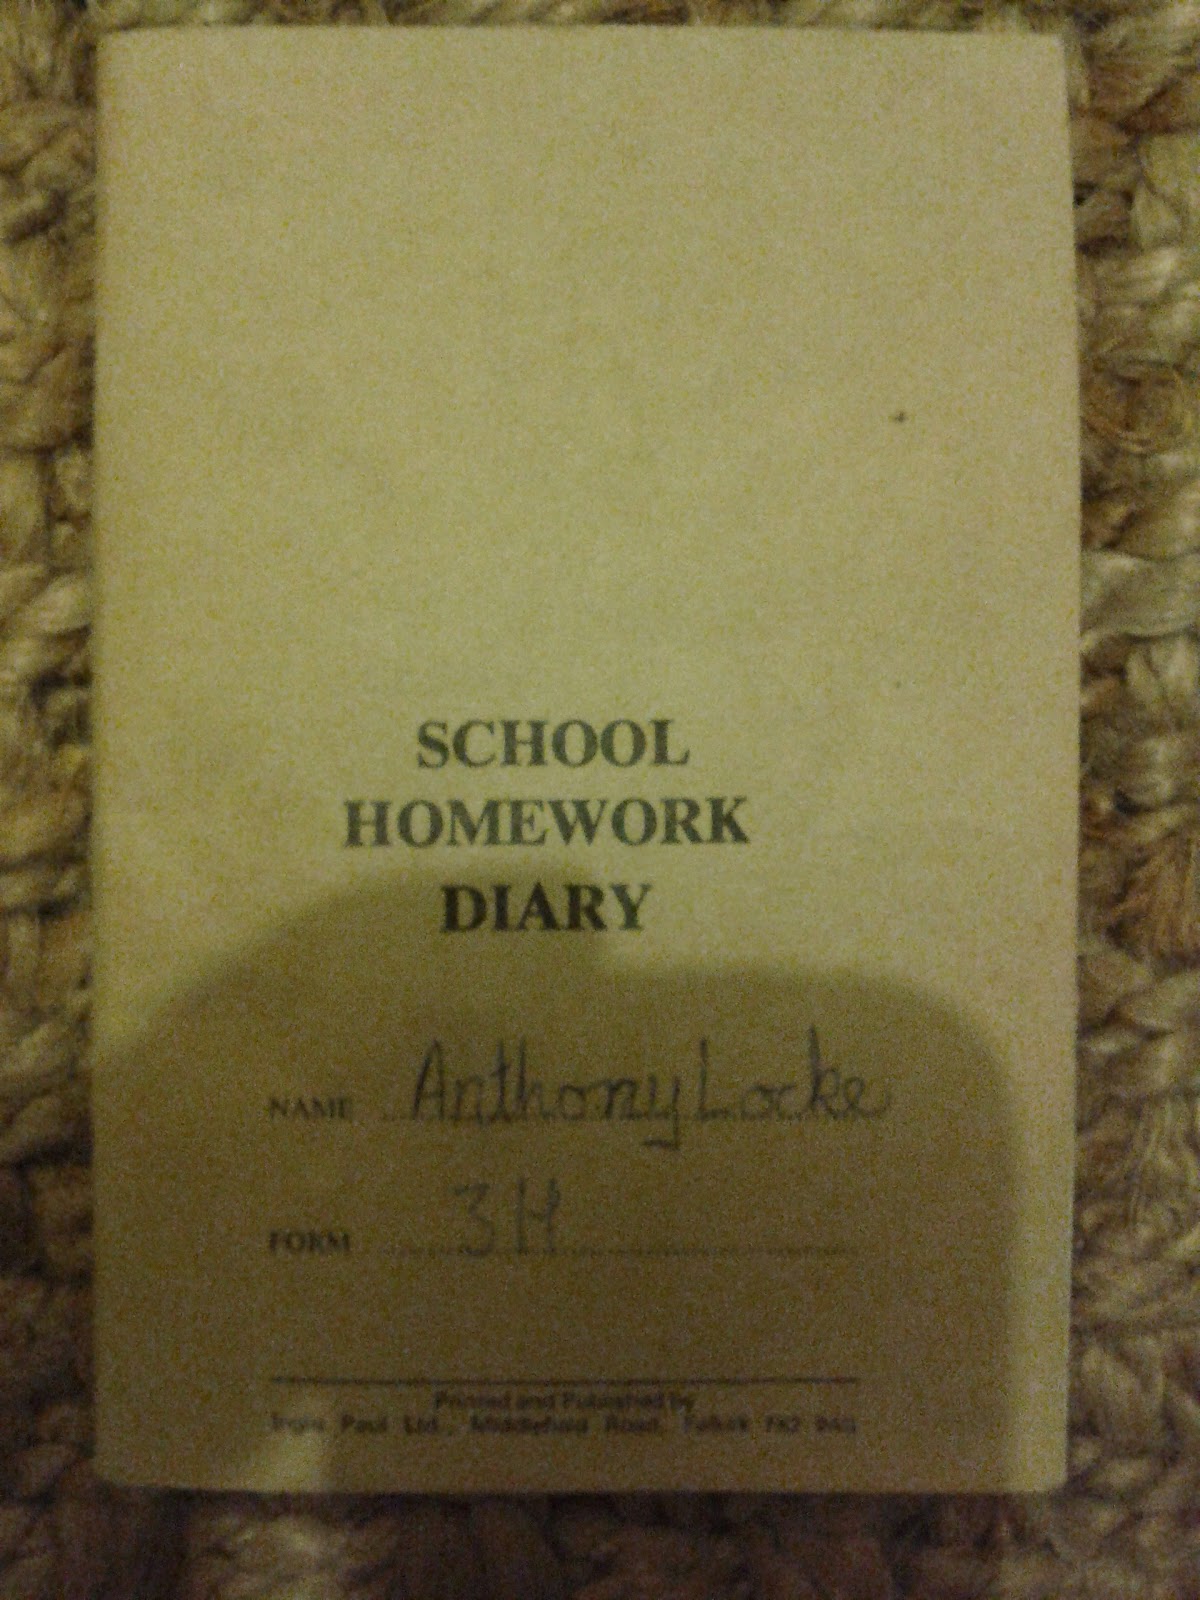 SCHOOL
HOMEWORK
DIARY
NAME Anthony Locke
FORM 3H
Printed and Published by
Paul Ltd., Middlefield Road, Falkirk FK2 9AG